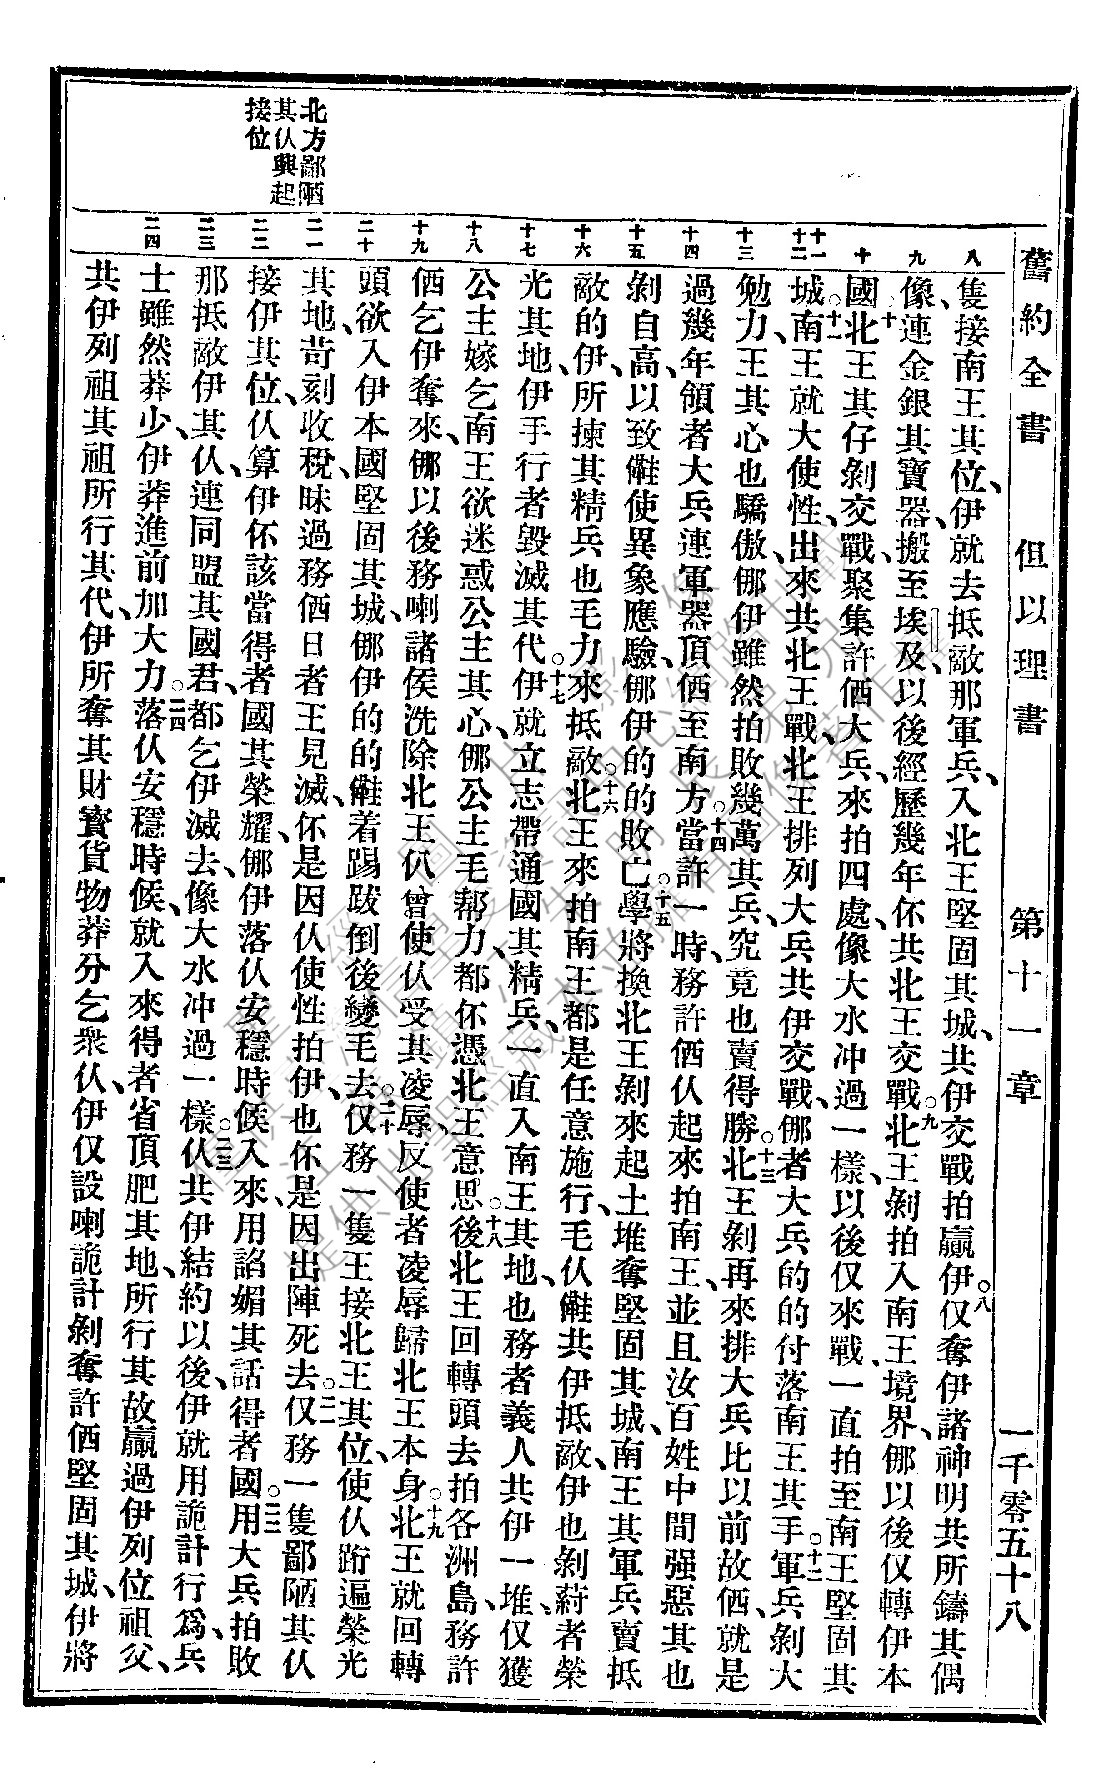 舊約全書　但以理書　第十一章　一千零五十八
八
九
十
十一
十二
十三
十四
十五
十六
十七
十八
十九
二十
二一
二二
二三
二四
北方鄙陋
其仈興起
接位
隻接南王其位、伊就去抵敵那軍兵、入北王堅固其城、共伊交戰拍贏伊。八伊仅奪伊諸神明共所鑄其偶
像、連金銀其寶器、搬至埃及、以後經歷幾年伓共北王交戰。九北王剝拍入南王境界、㑚以後仅轉伊本
國。十北王其仔剝交戰、聚集許𠆧大兵、來拍四處、像大水冲過一樣、以後仅來戰一直拍至南王堅固其
城。十一南王就大使性、出來共北王戰、北王排列大兵共伊交戰、㑚者大兵的的付落南王其手。十二軍兵剝大
勉力、王其心也驕傲、㑚伊雖然拍敗幾萬其兵、究竟也賣得勝。十三北王剝再來排大兵比以前故𠆧、就是
過幾年領者大兵連軍器頂𠆧至南方。十四當許一時、務許𠆧仈起來拍南王、並且汝百姓中間强惡其也
剝自高、以致㒰使異象應驗、㑚伊的的敗亡。十五學將換北王剝來起土堆奪堅固其城、南王其軍兵賣抵
敵的、伊所揀其精兵也毛力來抵敵。十六北王來拍南王、都是任意施行、毛仈㒰共伊抵敵、伊也剝葤者榮
光其地、伊手行者毀滅其代。十七伊就立志帶通國其精兵、一直入南王其地、也務者義人共伊一堆、仅獲
公主嫁乞南王欲迷惑公主其心、㑚公主毛帮力、都伓憑北王意思。十八後北王回轉頭去拍各洲島、務許
𠆧乞伊奪來、㑚以後務喇諸侯洗除北王仈曾使仈受其凌辱、反使者凌辱歸北王本身。十九北王就回轉
頭、欲入伊本國堅固其城、㑚伊的的㒰着踢跋倒後變毛去。二十仅務一隻王接北王其位、使仈跴遍榮光
其地、苛刻收稅、昧過務𠆧日者王見滅、伓是因仈使性拍伊、也伓是因出陣死去。二一仅務一隻鄙陋其仈
接伊其位、仈算伊伓該當得者國其榮耀、㑚伊落仈安穩時候、入來、用諂媚其話得者國。二二用大兵拍敗
那抵敵伊其仈、連同盟其國君、都乞伊滅去、像大水冲過一樣。二三仈共伊結約以後、伊就用詭計行爲、兵
士雖然莽少、伊莽進前加大力。二四落仈安穩時候、就入來得者省頂肥其地、所行其故贏過伊列位祖父、
共伊列祖其祖所行其代、伊所奪其財寶貨物莽分乞衆仈、伊仅設喇詭計剝奪許𠆧堅固其城、伊將